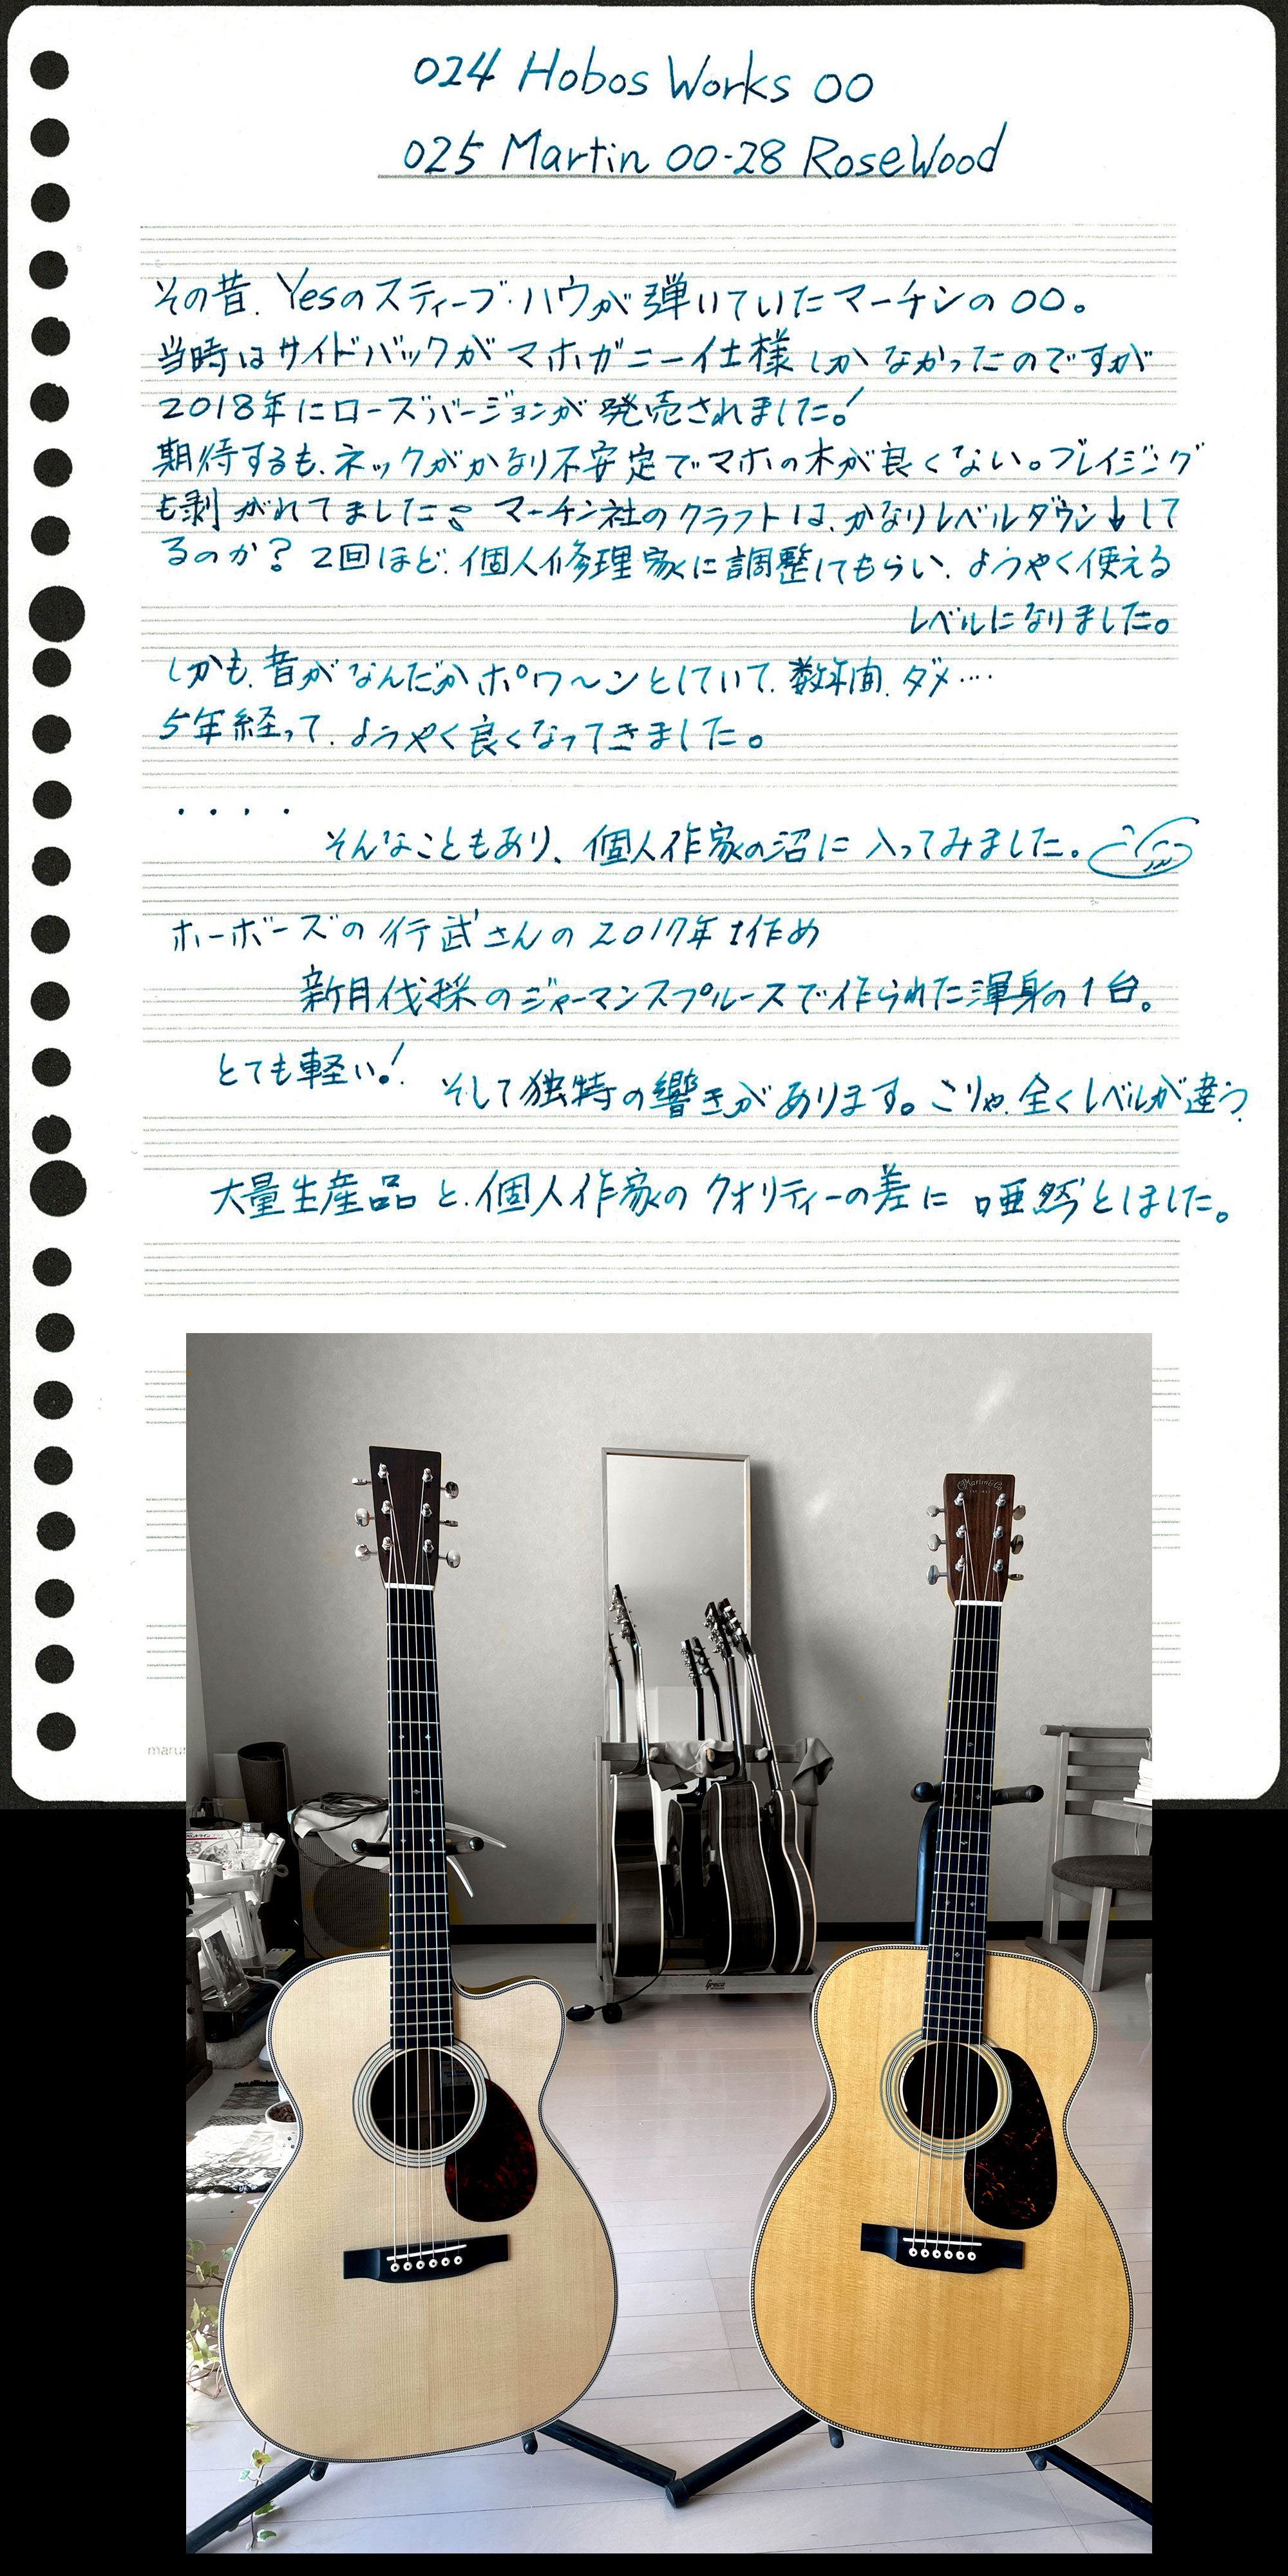 024 Hobos Works 00
025 Martin 00-28 RoseWood
その昔、Yesのスティーブ・ハウが弾いていたマーチンの00。
当時はサイドバックがマホガニー仕様しかなかったのですが
2018年にローズバージョンが発売されました!
期待するも、ネックがかなり不安定でマホの木が良くない。ブレイジング
も剥がれてました マーチン社のクラフトは、かなりレベルダウン↓して
るのか? 2回ほど、個人修理家に調整してもらい、ようやく使える
レベルになりました。
しかも、音がなんだかポワ〜ンとしていて、数年間、ダメ····
5年経って、ようやく良くなってきました。
・・・・
そんなこともあり、個人作家の沼に入ってみました。
ホーボーズの行武さんの2017年 作め
新月伐採のジャーマンスプルースで作られた渾身の1台。
とても軽い!
そして独特の響きがあります。こりゃ、全くレベルが違う、
大量生産品と、個人作家のクオリティーの差に唖然としました。
maru
Martin & Co
Greco